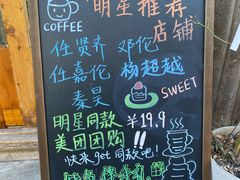 COFFEE
明星推荐
店铺
任贤齐 邓伦
任嘉伦 杨超越
秦昊
SWEET
明星同款 ¥19.9
美团团购!!
快来get同款吧!